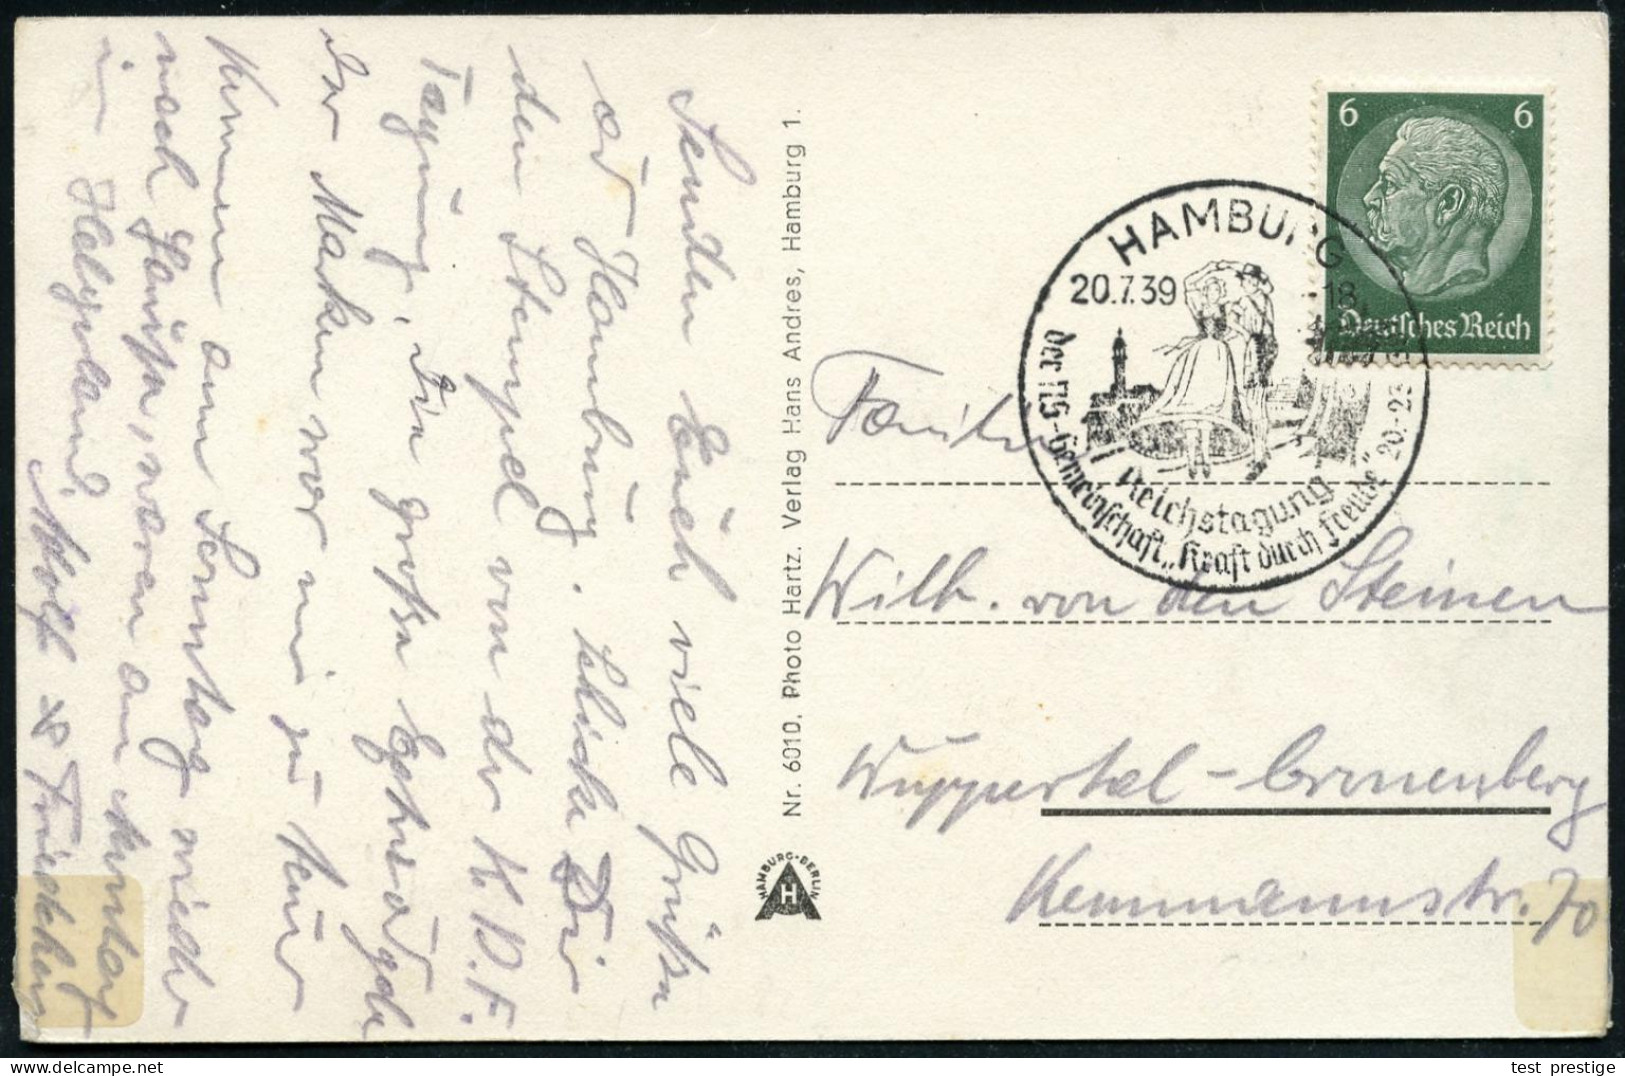 Senden Euch viele Grüße
aus Hamburg. Schicke Dir
den Stempel von der K.D.F.
Tagung, die große
der Marken war mir zu teuer
Kommen am Sonntag wieder
nach Hause, waren am
in Helgoland.
Adolf & Friedchen
Nr. 6010, Photo Hartz. Verlag Hans Andres, Hamburg 1.
HAMBURG-BERLIN
H
6 6
Deutsches Reich
HAMBURG
20.7.39 18
Reichstagung
der NS-Gemeinschaft „Kraft durch Freude" 20.-23
Familie
Wilh. von den Steinen
Wuppertal-Cronenberg
Kemmannstr. 70
test prestige